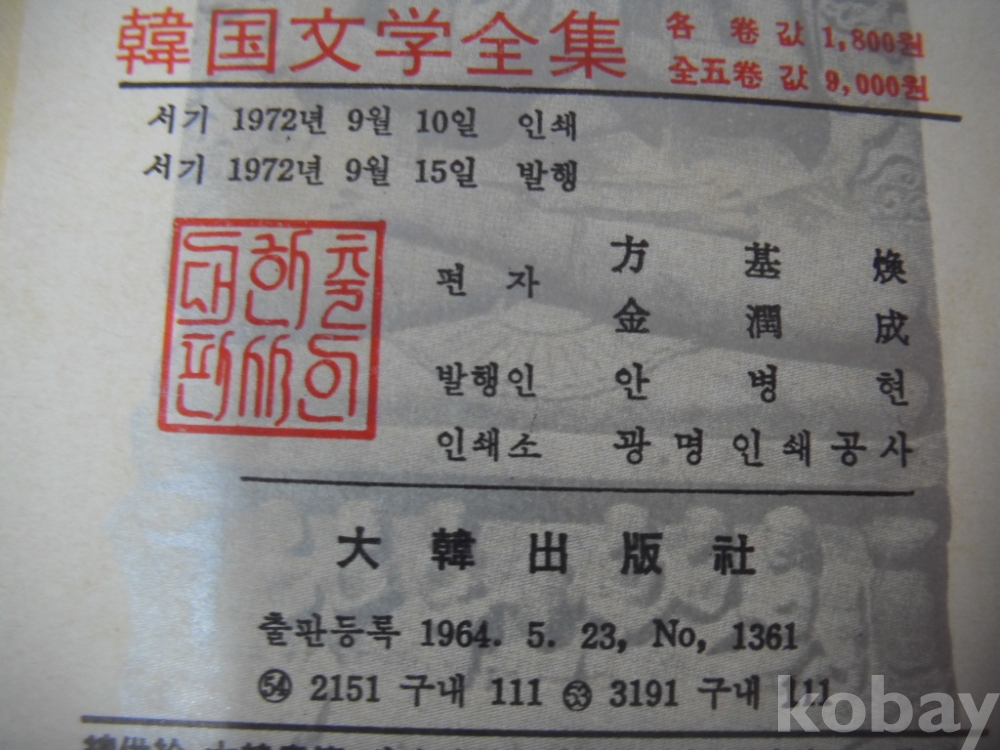 韓国文学全集
各 卷 값 1,800원
全五卷 값 9,000원
서기 1972년 9월 10일 인쇄
서기 1972년 9월 15일 발행
대한출
판사인
편 자 方 基 煥
金 潤 成
발행인 안 병 현
인쇄소 광명인쇄공사
大 韓 出 版 社
출판등록 1964. 5. 23, No, 1361
54 2151 구내 111 53 3191 구내 111
kobay